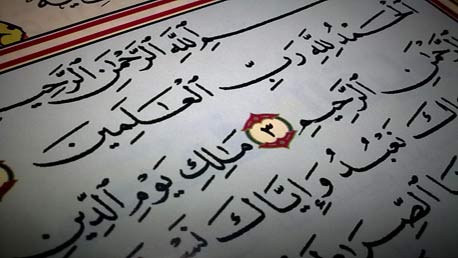 بِسْمِ ٱللَّهِ ٱلرَّحْمَٰنِ ٱلرَّحِيمِ
ٱلْحَمْدُ لِلَّهِ رَبِّ ٱلْعَٰلَمِينَ
ٱلرَّحْمَٰنِ ٱلرَّحِيمِ ٣ مَٰلِكِ يَوْمِ ٱلدِّينِ
نَعْبُدُ وَإِيَّاكَ
ٱلصِّرَاطَ